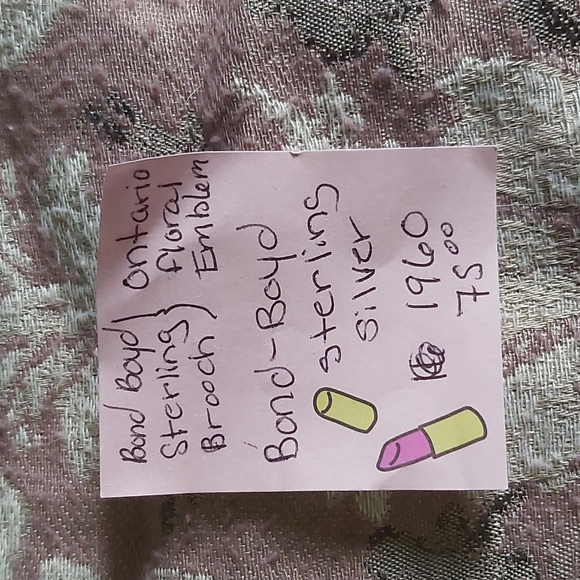 Bond Boyd) Ontario
Sterling) Floral
Brooch) Emblem
Bond-Boyd
sterling
silver
1960
75.00